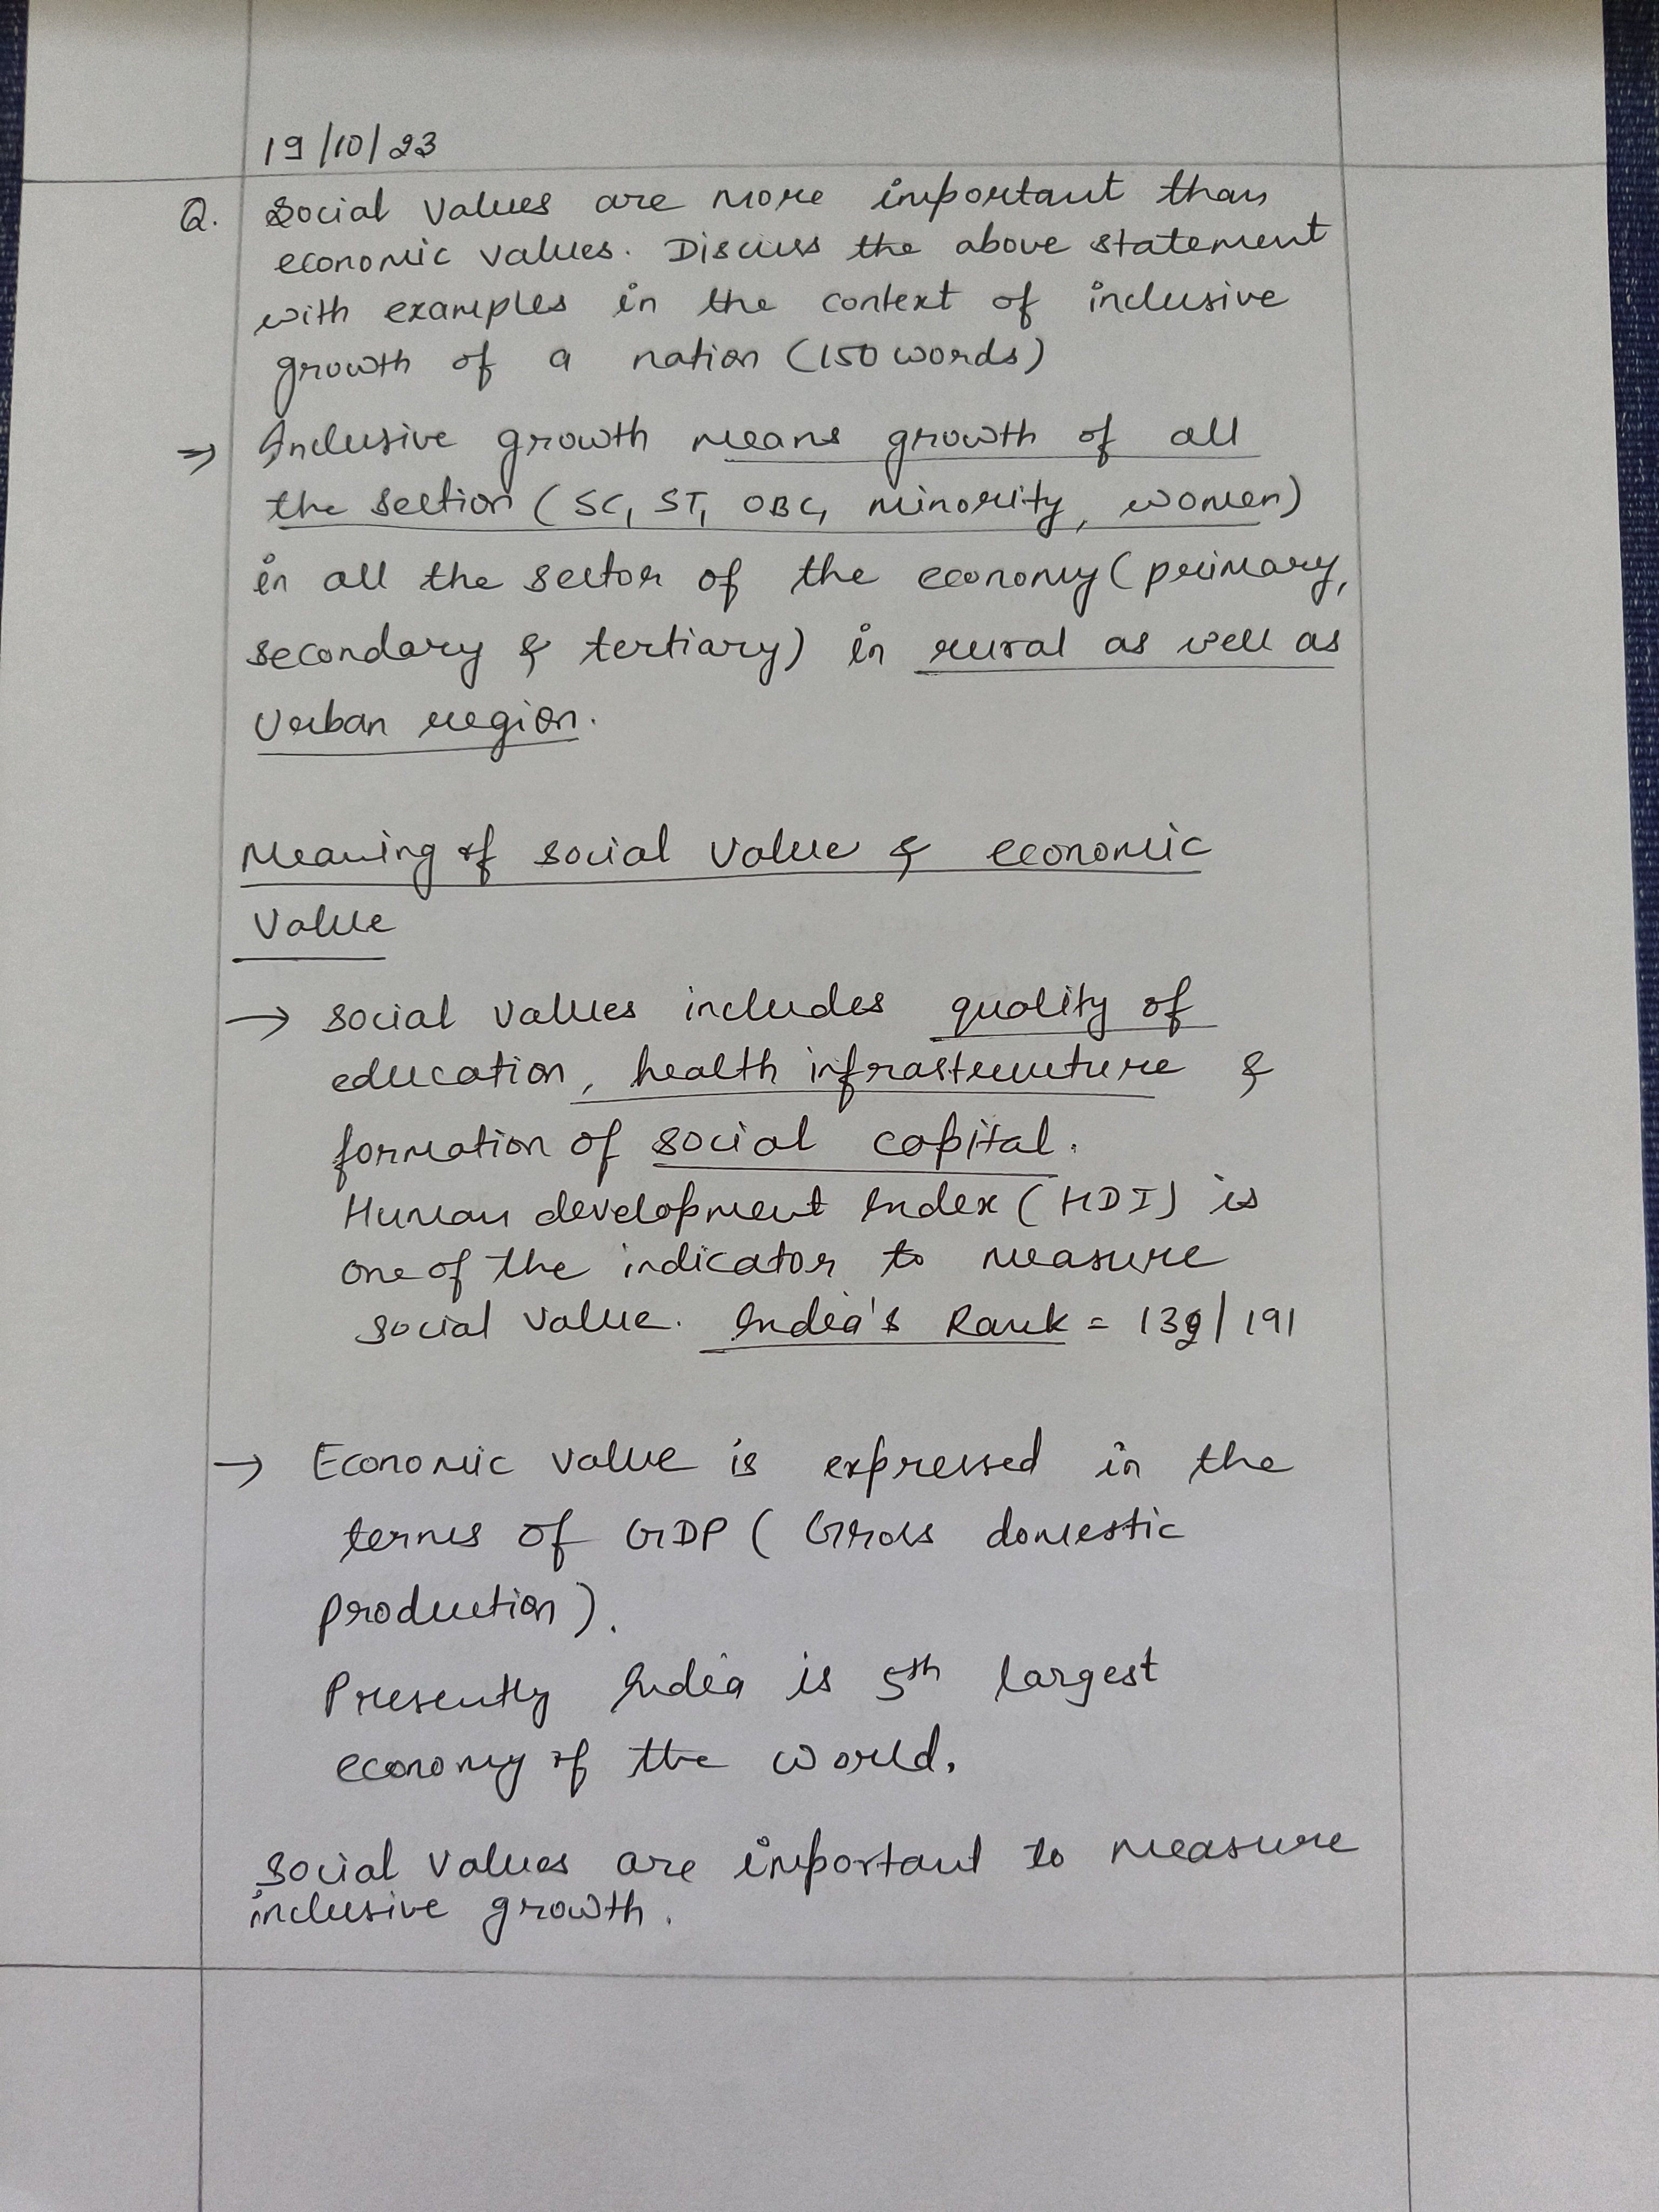 19/10/23
Q. Social values are more important than
economic values. Discuss the above statement
with examples in the context of inclusive
growth of a nation (150 words)
⇒ Inclusive growth means growth of all
the section (SC, ST, OBC, minority, women)
in all the sector of the economy (primary,
secondary & tertiary) in rural as well as
Urban region.
Meaning of social value & economic
value
→ social values includes quality of
education, health infrastructure &
formation of social capital.
Human development Index (HDI) is
one of the indicator to measure
social value. India's Rank = 139/191
→ Economic value is expressed in the
terms of GDP (Gross domestic
production).
Presently India is 5th largest
economy of the world.
Social values are important to measure
inclusive growth.